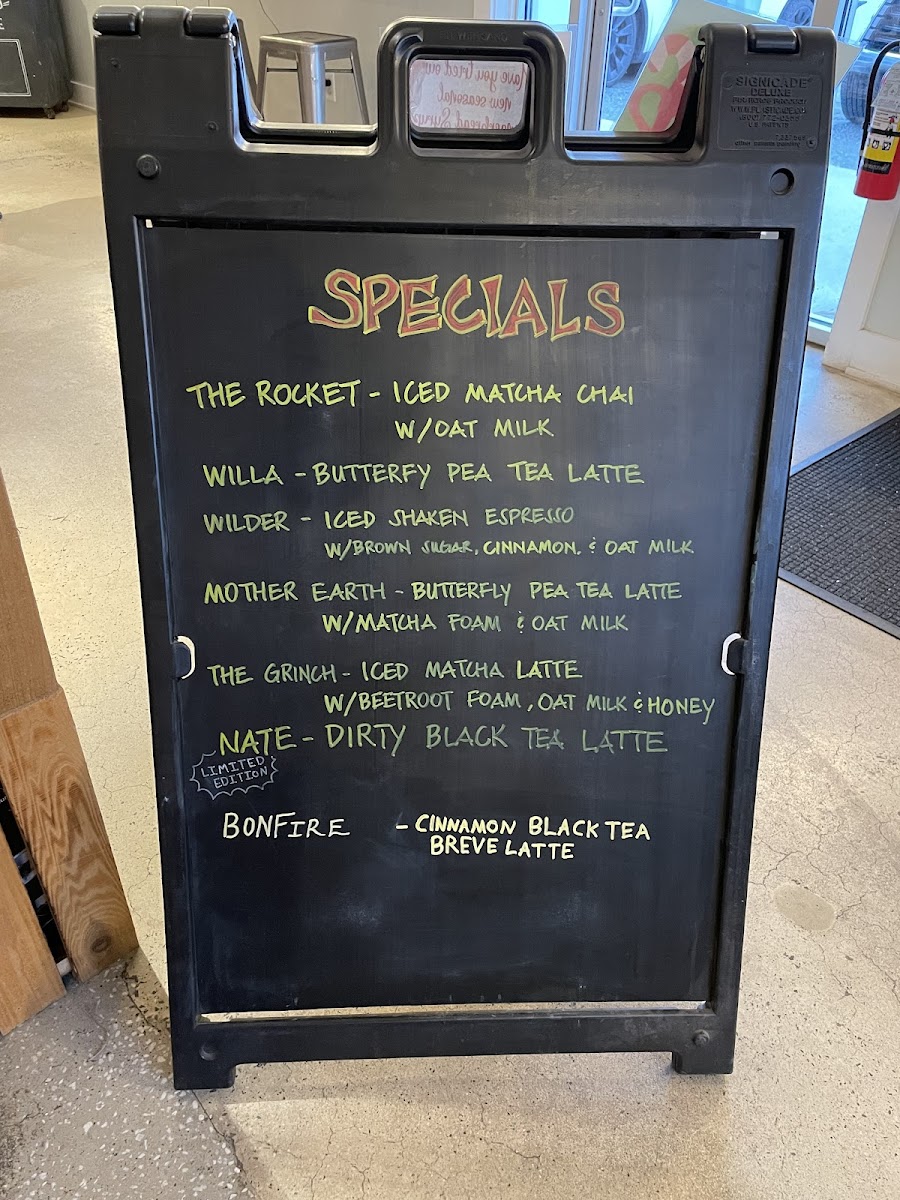 SIGNICADE
DELUXE
SPECIALS
THE ROCKET - ICED MATCHA CHAI
W/OAT MILK
WILLA - BUTTERFY PEA TEA LATTE
WILDER - ICED SHAKEN ESPRESSO
W/BROWN SUGAR, CINNAMON, & OAT MILK
MOTHER EARTH - BUTTERFLY PEA TEA LATTE
W/MATCHA FOAM & OAT MILK
THE GRINCH - ICED MATCHA LATTE
W/BEETROOT FOAM, OAT MILK & HONEY
NATE - DIRTY BLACK TEA LATTE
LIMITED
EDITION
BONFIRE - CINNAMON BLACK TEA
BREVE LATTE